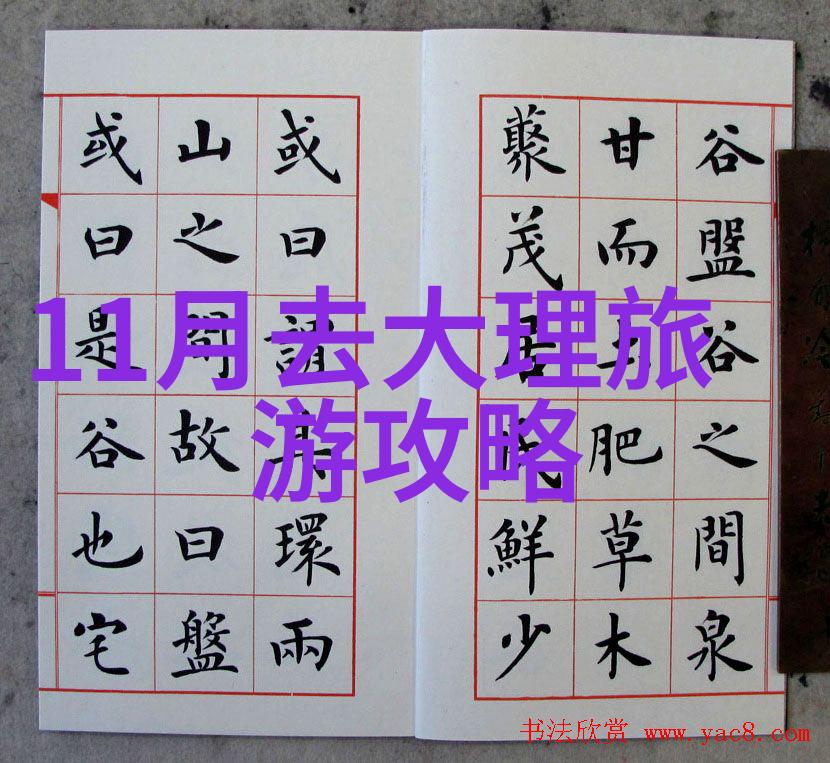 谷盤谷之間泉
甘而土肥草木
藂茂居民鮮少
或曰謂其環兩
山之間故曰盤
或曰是谷也宅
11月去大理旅
游攻略
书法欣赏 www.yac8.com